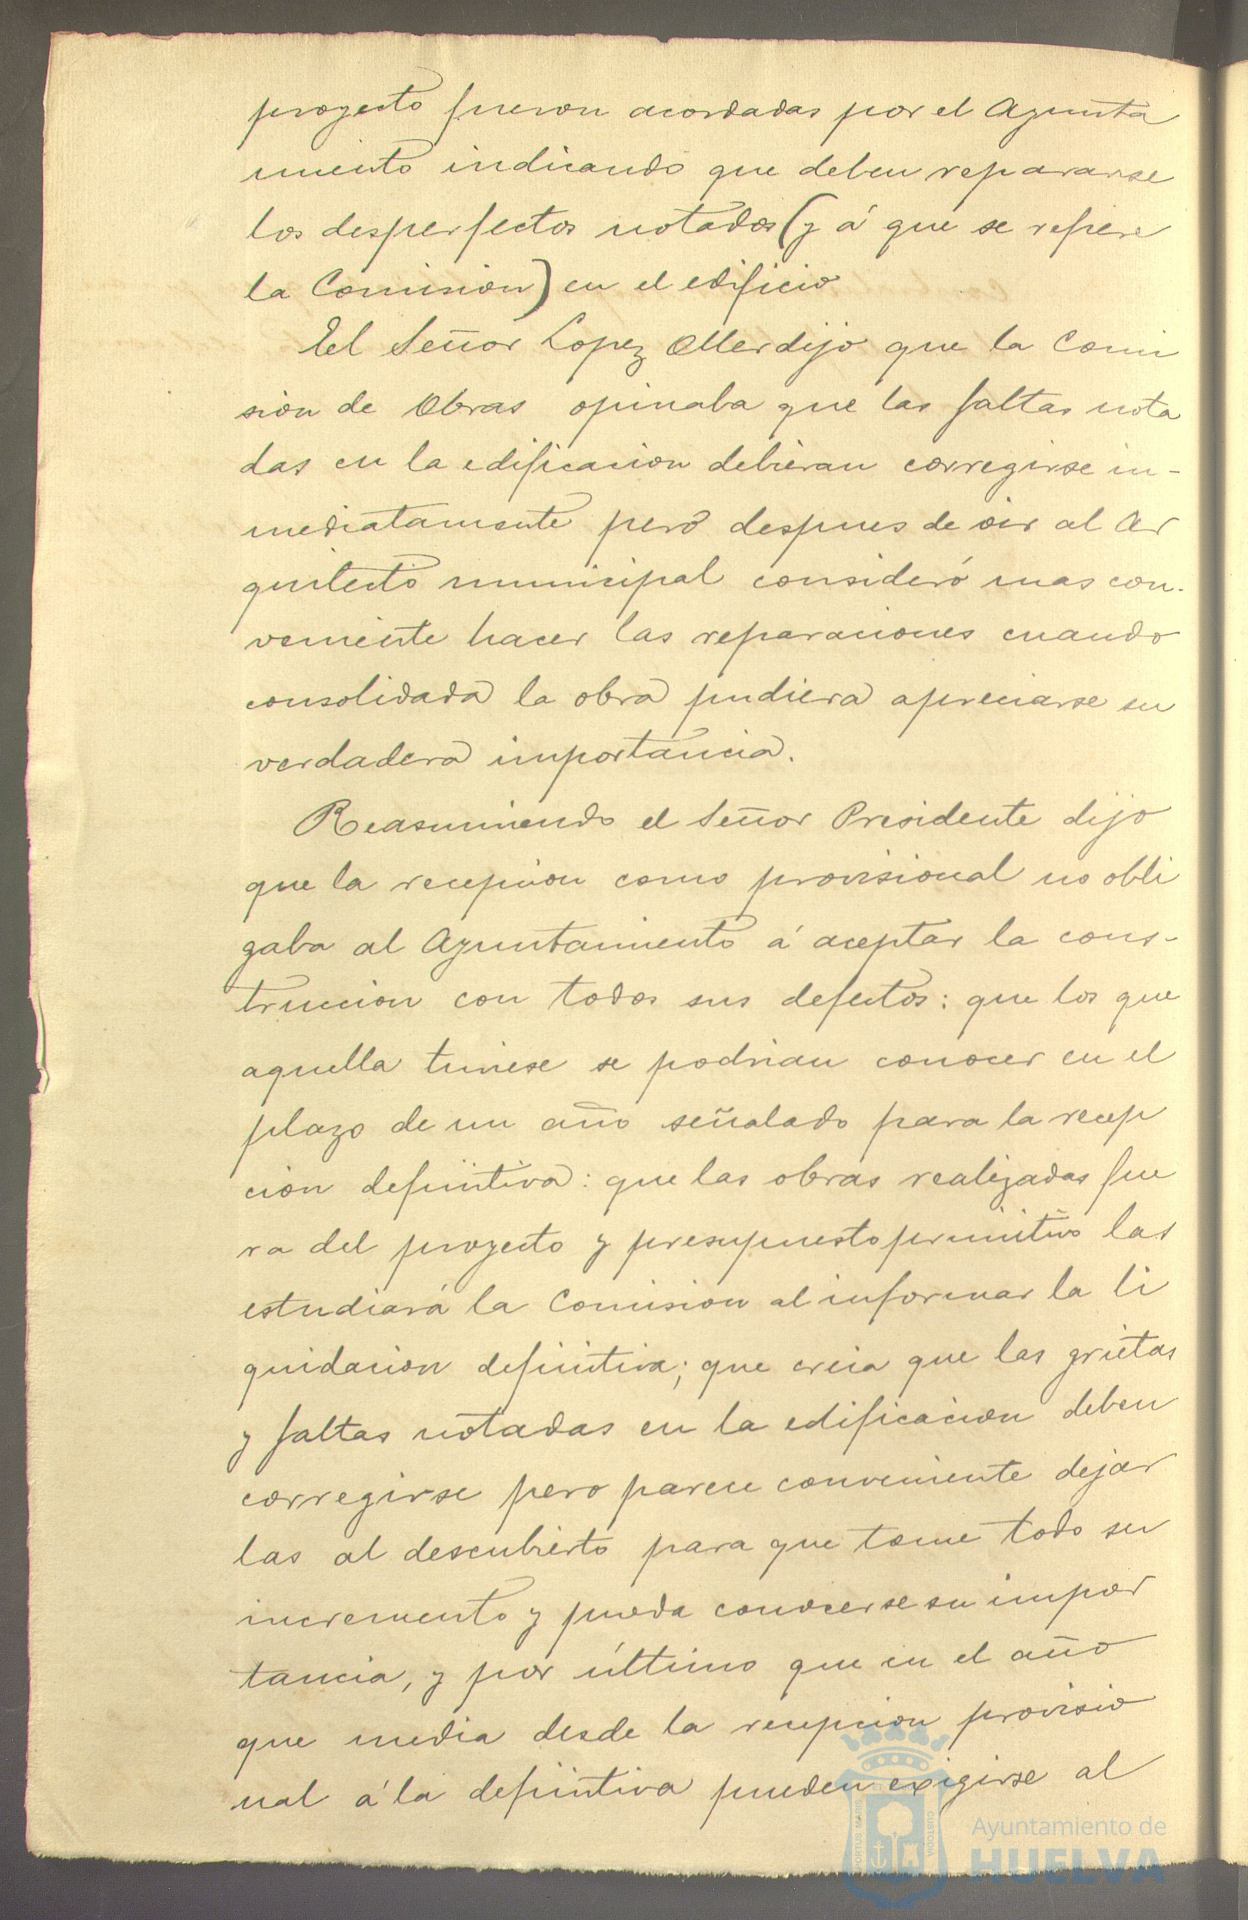 proyecto fueron acordadas por el Ayunta
miento indicando que deben repararse
los desperfectos notados (y á que se refiere
la Comision) en el edificio
El Señor Lopez Oller dijo que la Comi
sion de Obras opinaba que las faltas nota
das en la edificacion debieran corregirse in-
mediatamente pero despues de oir al Ar
quitecto municipal consideró mas con-
veniente hacer las reparaciones cuando
consolidada la obra pudiera apreciarse su
verdadera importancia.
Reasumiendo el Señor Presidente dijo
que la recepcion como provisional no obli
gaba al Ayuntamiento á aceptar la cons-
truccion con todos sus defectos: que los que
aquella tuviese se podrian conocer en el
plazo de un año señalado para la recep
cion definitiva: que las obras realizadas fue
ra del proyecto y presupuesto primitivo las
estudiará la Comision al informar la li
quidacion definitiva; que creia que las grietas
y faltas notadas en la edificacion deben
corregirse pero parece conveniente dejar
las al descubierto para que tome todo su
incremento y pueda conocerse su impor
tancia, y por último que en el año
que media desde la recepcion provisio
nal á la definitiva pueden exigirse al
PORTUS MARIS CUSTODIA
Ayuntamiento de
HUELVA